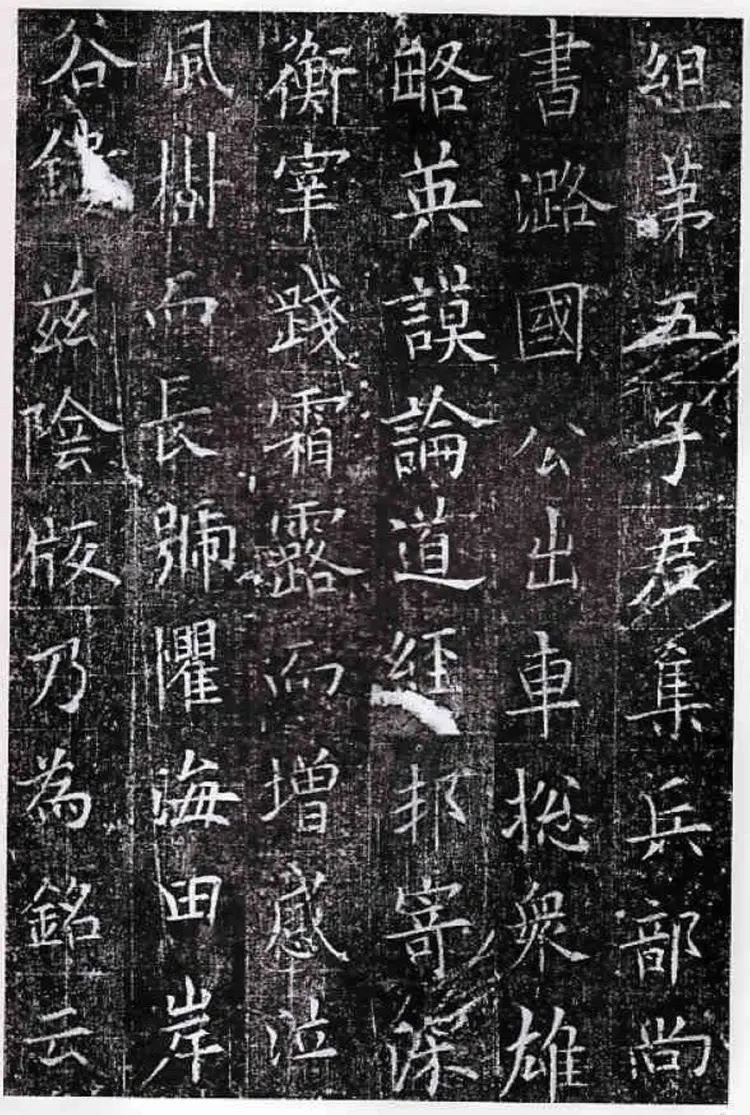 組苐五子君集兵部尚
書潞國公出車捴衆雄
略英謨論道經邦寄深
衡宰踐霜露而增感泣
風樹而長號懼海田岸
谷茲陰版乃為銘云